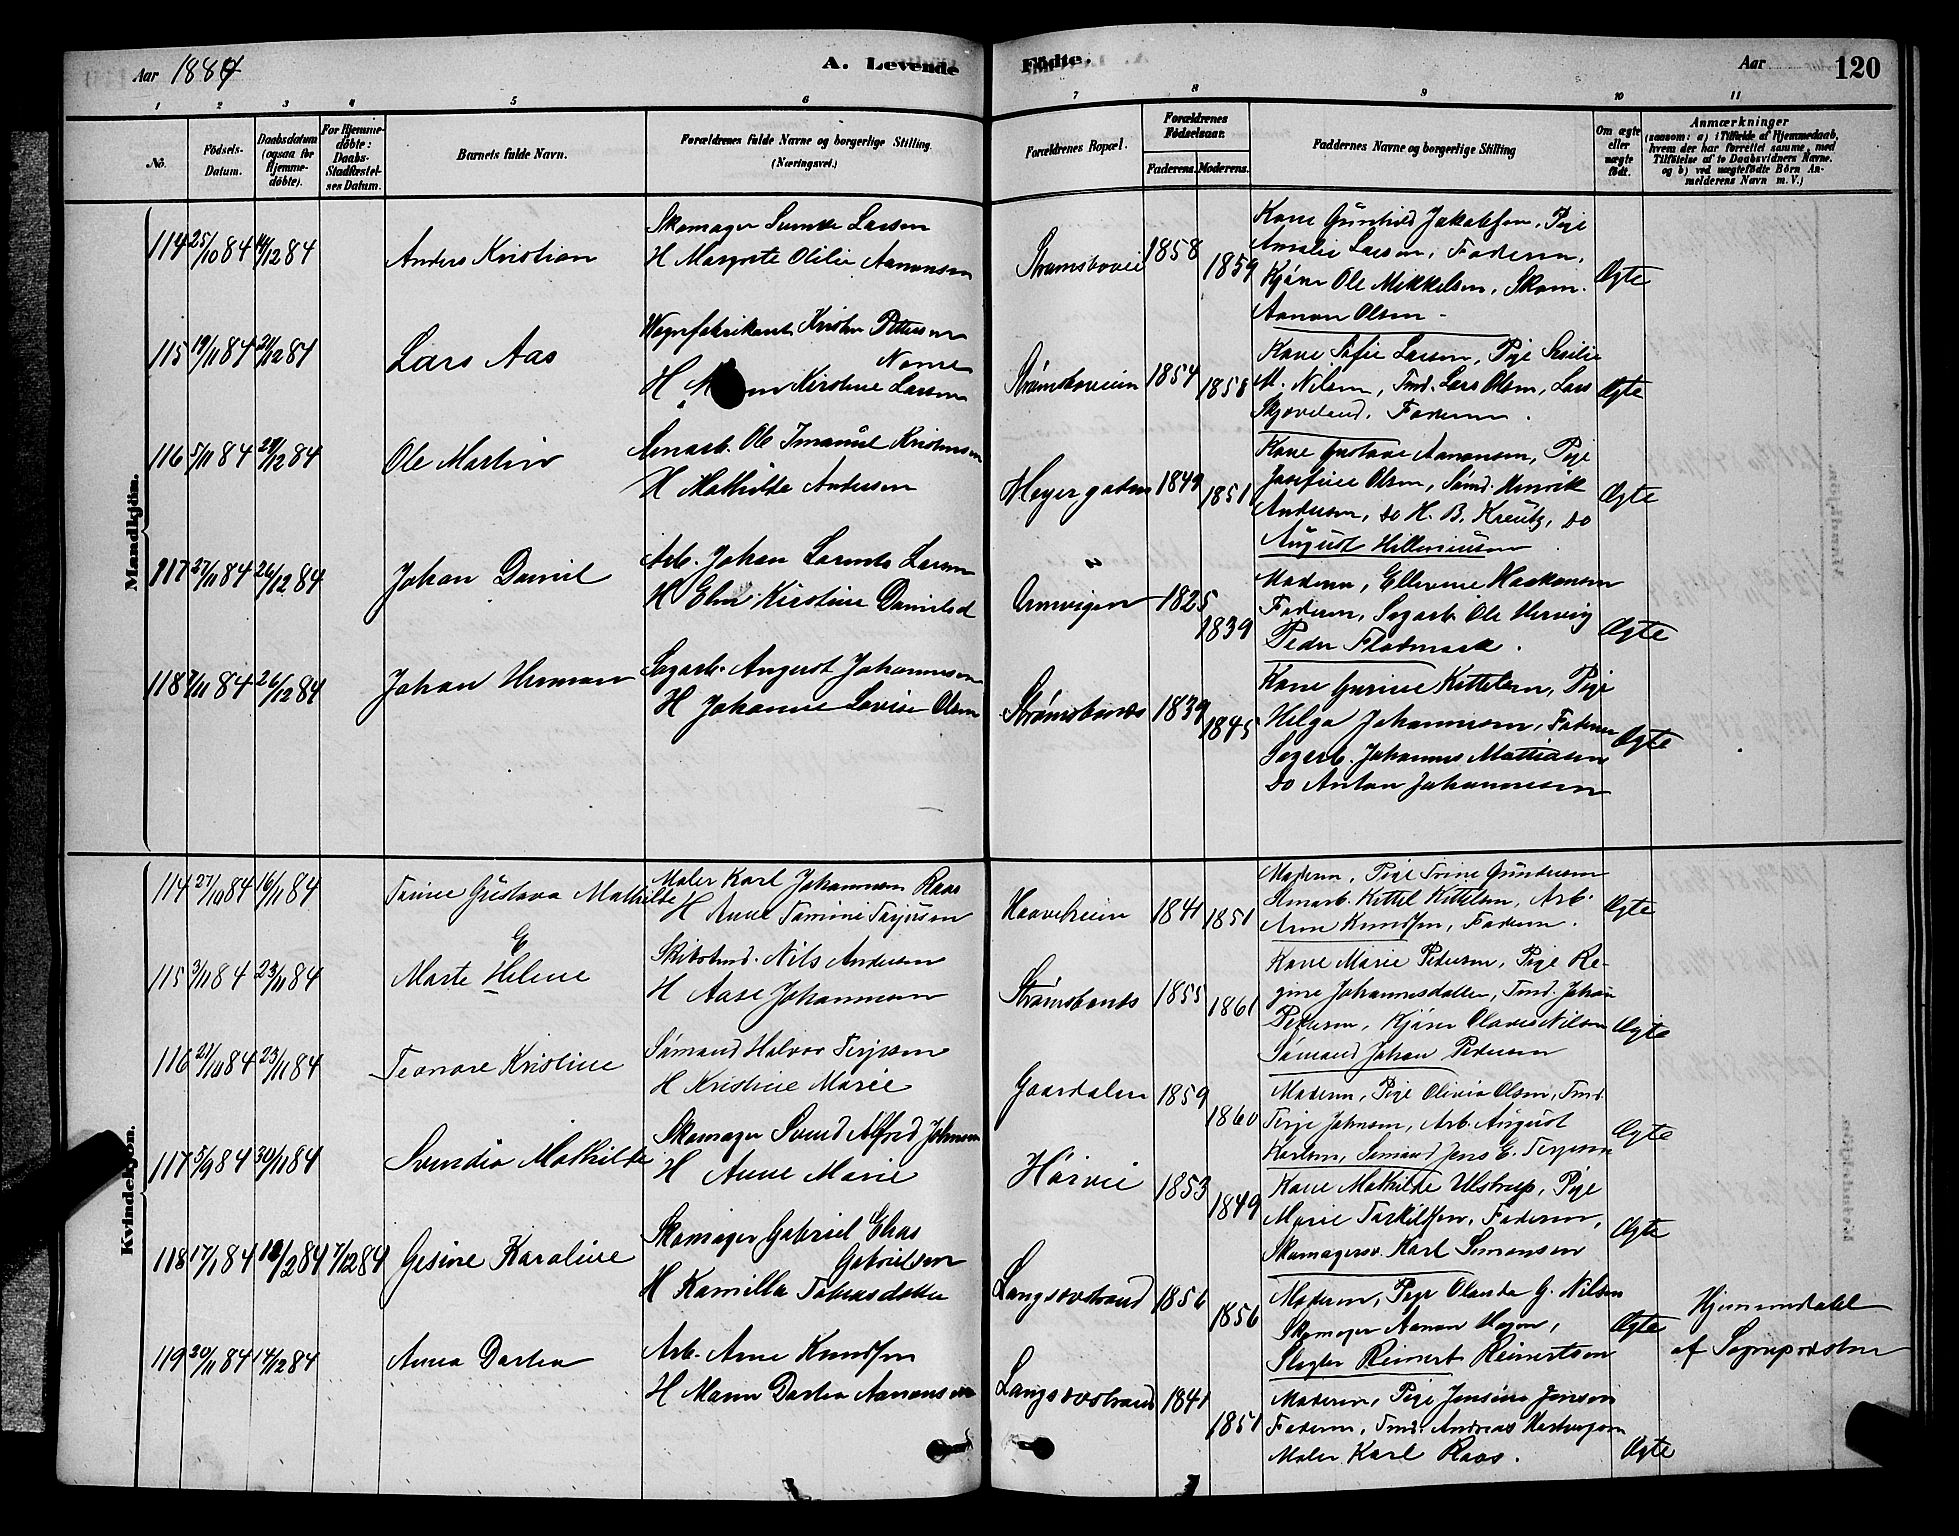 Aar 1884
A. Levende
Födte.
Aar
120
1 2 3 4 5 6 7 8 9 10 11
No.
Födsels-Datum.
Daabsdatum (ogsaa for Hjemme-döbte).
For Hjemme-döbte: Daabs-Stadfæstel-ses Datum.
Barnets fulde Navn.
Forældrenes fulde Navne og borgerlige Stilling. (Næringsvei.)
Forældrenes Bopæl.
Forældrenes Födselsaar.
Faderens. Moderens.
Faddernes Navne og borgerlige Stilling
Om ægte eller uægte født.
Anmærkninger
(saasom: a) i Tilfælde af Hjemmedaab,
hvem der har forrettet samme, med
Tilföielse af to Daabsvidners Navne,
og b) ved uægtefödte Börn An-
melderens Navn m.V.)
Mandkjön.
114 25/10 84 14/12 84 Anders Kristian
Skomager Larsen
H Margrete Otilie Aanonsen
1858 1859
Kone Gunhild Jakobsen, Pige
Amalie Larsen, Faderen,
Kjöm Ole Mikkelsen, Skom.
Aanon Olsen
Ægte
115 19/11 84 21/12 84 Lars Aas
Vognfabrikant Kristen Pettersen
Næme
H Kirstine Larsen
Strömsboveien 1854 1858
Kone Sofie Larsen, Pige Sesilie
M. Nilsen, Tmd. Lars Olsen, Lars
Skjoveland, Faderen.
Ægte
116 5/11 84 21/12 84 Ole Martin
Ole Imanuel Kristensen
H Mathilde Andersen
Meyergaden 1849 1851
Kone Gustave Aanonsen, Pige
Josefine Olsen, Sömd. Henrik
Andersen, do H. B. Kreutz, do
August
Ægte
117 27/11 84 26/12 84 Johan Daniel
Arb. Johan Larents Larsen
H Elen Kirstine Danielsd
Arnevigen 1825 1839
Moderen, Ellevine Haakensen
Faderen, Sagarb. Ole Hervig
Peder Flodmark.
Ægte
118 7/11 84 26/12 84 Johan Herman
Sagarb. August Johannesen
H Johanne Lovise Olsen
Strömsbunes 1839 1845
Kone Gurine Kittelsen, Pige
Helga Johannesen, Faderen
Sagarb. Johannes Mattiasen
do Anton Johannesen
Ægte
Kvindekjön.
114 27/10 84 16/11 84 Trine Gustava Mathilde
Maler Karl Johannesen Raas
H Anne Tomine Terjesen
Haaveveien 1841 1851
Moderen, Pige Trine Gundersen
Kittel Kittelsen, Arb.
Arne Knudsen, Faderen.
Ægte
115 3/11 84 23/11 84 Marte E Helene
Skibstmd. Nils Andersen
H Aase Johannesen
Strömsbunes 1855 1861
Kone Marie Pedersen, Pige Re-
gine Johannesdatter, Tmd. Johan
Pedersen, Kjöm Olaves Nilsen
Sömand Johan Pedersen
Ægte
116 21/10 84 23/11 84 Teonore Kristine
Sömand Halvor Terjesen
H Kristine Marie
Gaardalen 1859 1860
Moderen, Pige Olivia Olsen, Tmd
Terje Johnsen, Arb. August
Karlsen, Sömand Jens E. Terjesen
Ægte
117 5/9 84 30/11 84 Svendia Mathilde
Skomager Svend Alfred Johnsen
H Anne Marie
1853 1849
Kone Mathilde Ulstrup, Pige
Marie Torkildsen, Faderen,
Skomagersv. Karl Simonsen
Ægte
118 17/1 84 18/2 84 7/12 84 Gesine Karoline
Skomager Gabriel Elias
Gabrielsen
H Kamilla Tobiasdatter
Langsævstrand 1856 1856
Moderen, Pige Olanda G. Nilsen
Skomager Aanon Hogen,
Slagter Reinert Reinertsen
Ægte
Hjemmedøbt
af Sognepresten
119 20/11 84 14/12 84 Anna Dortea
Arb. Arne Knudsen
H Maren Dortea Aanonsen
Langsævstrand 1841 1851
Moderen, Pige Jensine Jensen
Faderen, Tmd. Andreas
Maler Karl Raas.
Ægte